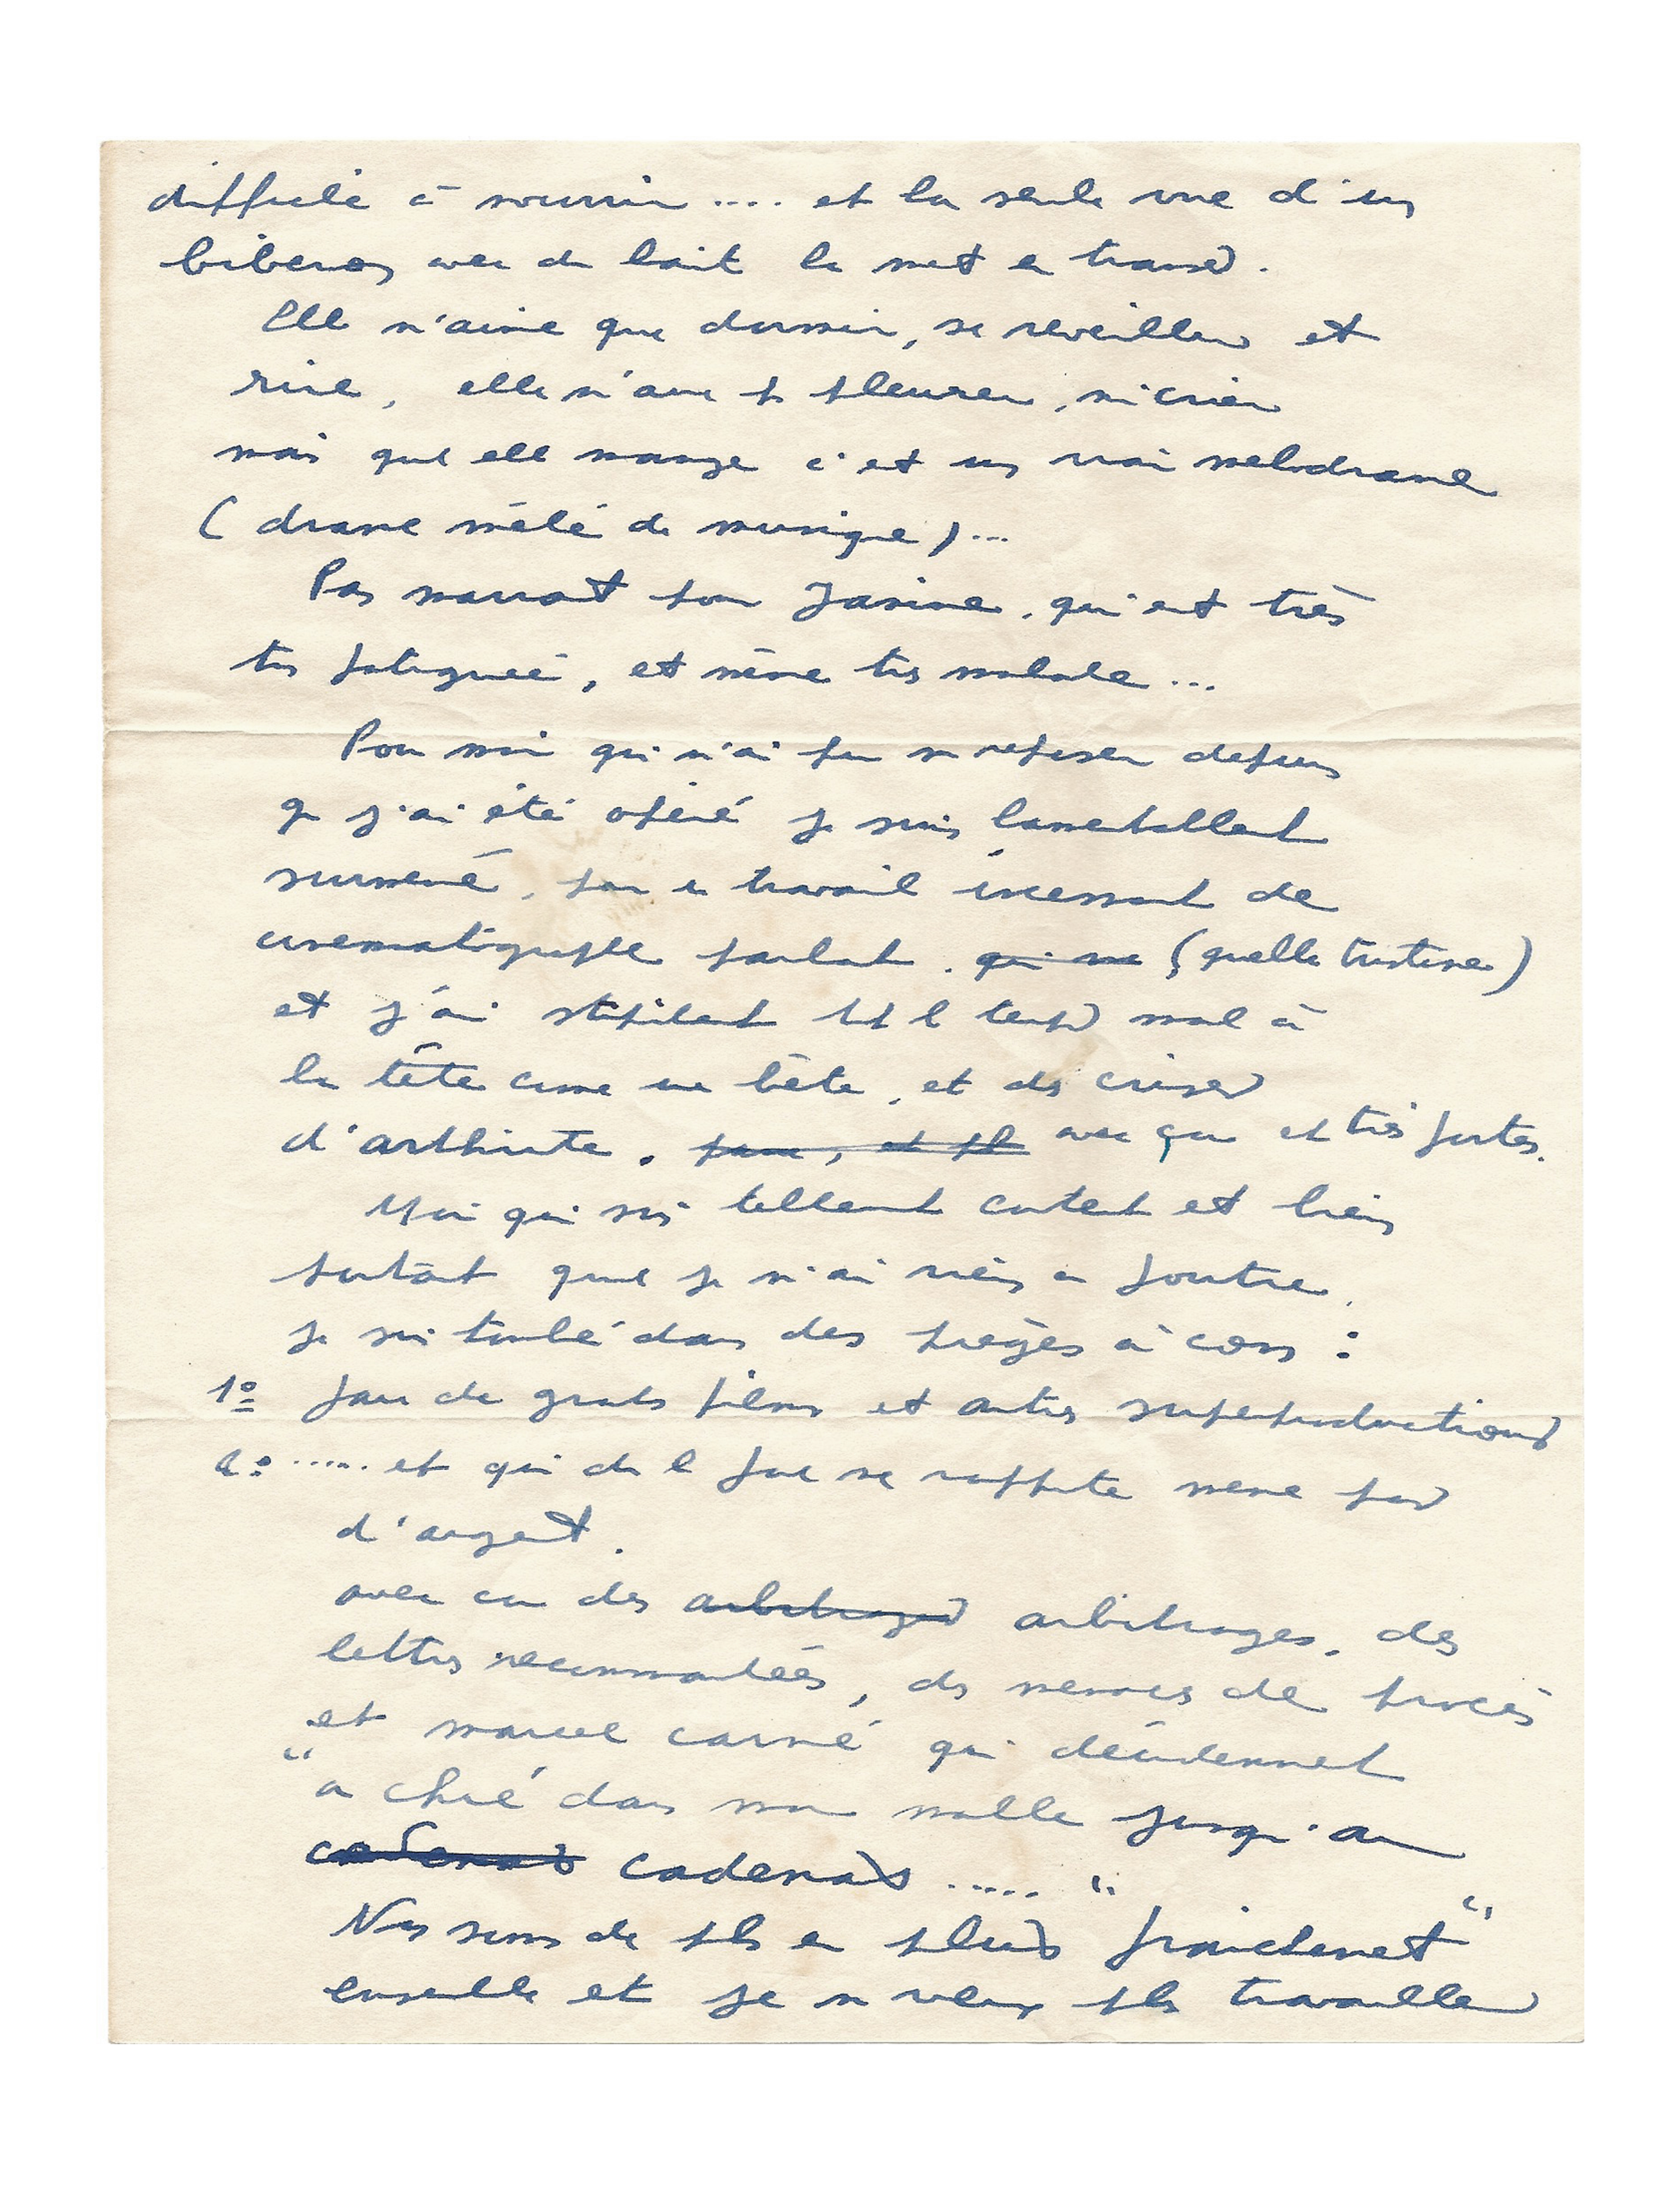 difficile à nourrir .... et la seule vue d'un
biberon avec du lait la met en transes.
Elle n'aime que dormir, se reveiller et
rire, elle n'aime pas pleurer, ni crier
mais quel elle mange c'est un vrai melodrame
(drame mêlé de musique)...
Pas marrant pour Janine, qui est très
très fatiguée, et même très malade...
Pour moi qui n'ai pu me reposer depuis
que j'ai été opéré je suis lamentablement
surmené, par un travail incessant de
cinematographe parlant. qui me (quelle tristesse)
et j'ai stupidement tout le temps mal à
la tête comme une bête, et des crises
d'arthrite. avec ça et très fortes.
Moi qui suis tellement content et bien
portant quand je n'ai rien a foutre,
je suis tombé dans des pièges à cons :
1º faire de grands films et autres superproductions
2º ..... et qui de le faire ne rapporte meme pas
d'argent.
avec en des arbitrages arbitrages, des
lettres recommandées, des menaces de procès
et marcel carné qui décidemment
"a chié dans ma malle jusqu'au
cadenas cadenas ..... "
Nous sommes de plus en plus fraîchement"
ensemble et je ne veux plus travailler